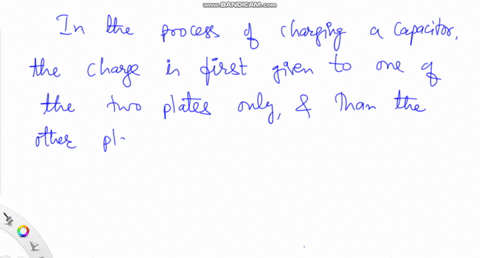 WWW.BANDICAM.COM
In the process of charging a capacitor,
the charge is first given to one of
the two plates only, & than the
other pl